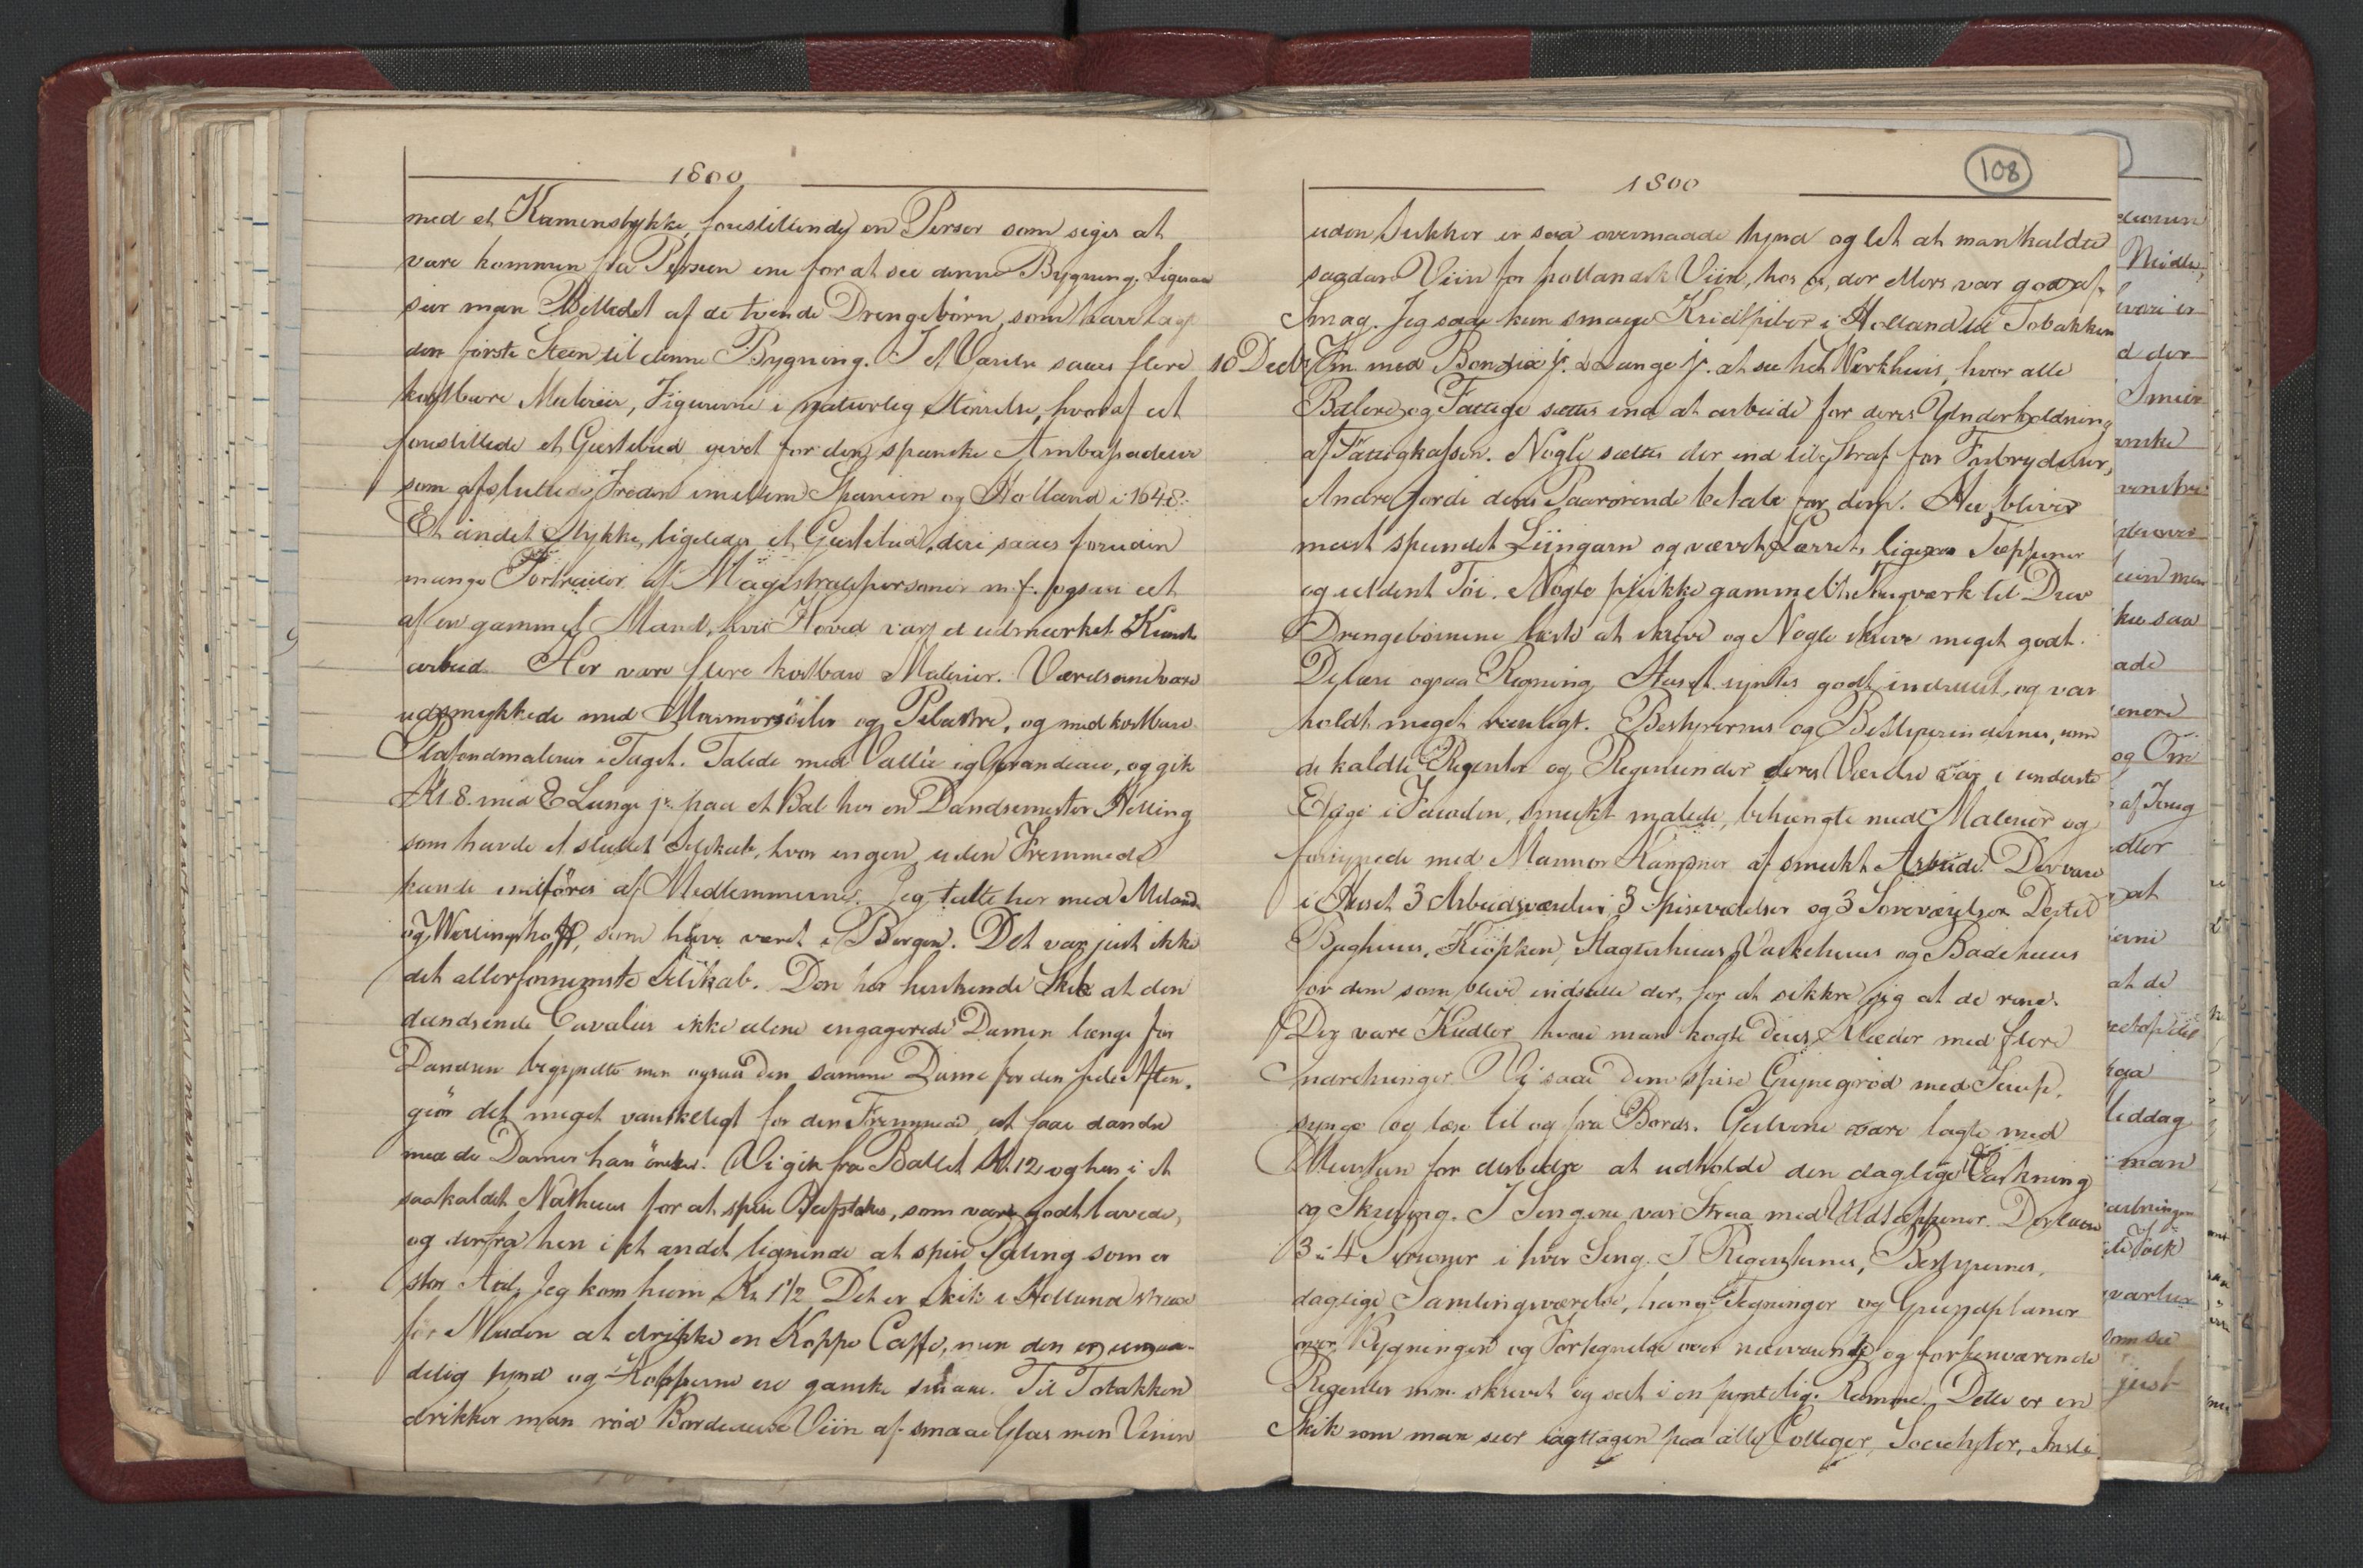 1800
med et Kamenstykke, forestillende en Perser som siges at
være kommen fra Persien ene for at see denne Bygning. Ligesaa
seer man Billedet af de tvende Drengebörn, som have lagt
den förste Steen til denne Bygning. I et Værelse saaes flere
kostbare Malerier, Figurerne i naturlig Störrelse, hvoraf eet
forestillede et Gjestebud givet for den spanske Ambassadeur
som afsluttede Freden imellem Spanien og Holland i 1648.
Et andet Stykke, ligeledes et Gjestebud, deri saaes foruden
mange Portraiter af Magistratspersoner m.f. ogsaa eet
af en gammel Mand, hvis Hoved var et udmærket Kunst
arbeid. Her vare flere kostbare Malerier. Værelserne vare
udsmykkede med Marmorsöiler og Pilastre, og med kostbare
Plafondmalerier i Taget. Talede med Vallée og Grandeau, og gik
Kl. 8 med E Lange jr. paa et Bal hos en Dandsemester Helling
som havde et sluttet Selskab, hvor ingen uden Fremmede
kunde indföres af Medlemmerne. Jeg talte her med Meland
og Werlingshoff, som have været i Bergen. Det var just ikke
det allerfornemste Selskab. Den her herskende Skik at den
dandsende Cavalier ikke alene engagerede Damen længe för
Dandsen begyndte men ogsaa den samme Dame for den hele Aften,
giör det meget vanskeligt for den Fremmede, at faae dandse
med de Damer han önsker. Vi gik fra Ballet Kl. 12 og hen i et
saakaldet Nathuus for at spise Beefsteaks, som vare godt lavede,
og derfra hen i et andet lignende at spise Paling som er
stor Aal. Jeg kom hiem Kl. 1½ Det er Skik i Holland strax
för Maden at drikke en Koppe Caffe, men den er umaa-
delig tynd og Kopperne ere ganske smaae. Til Tobakken
drikker man röd Bordeauxe Viin af smaae Glas men Vinen
1800
108
uden Sukker er saa overmaade tynd og let at man kaldte
saadan Viin for hollandsk Viin, hos os, der ellers var god af
Smag. Jeg saae kun smaae Kridtpiber i Holland til Tobakken
10 Decbr. Fm. med Bendix jr. & Lange jr. at see het Werkhuis, hvor alle
Betlere og Fattige sættes ind at arbeide for deres Underholdning
af Fattigkassen. Nogle sættes der ind til Straf for Forbrydelser,
Andre fordi deres Paarörende betale for dem. Her bliver
meest spundet Liingarn og vævet Lærret, ligesaa Tæppener
og uldent Töi. Nogle pikke gammelt Taugværk til Drev
Drengebörnene lærte at skrive og Nogle skreve meget godt.
De lære ogsaa Regning. Huset syntes godt indrettet, og var
holdt meget reenligt. Bestyrernes og Bestyrerindernes, som
de kaldte Regenter og Regentinder deres Værelse var i underste
Etage i Facaden, smukt malede, behængte med Malerier og
forsynede med Marmor Kaminer af smukt Arbeide. Der vare
i Huset 3 Arbeidsværelser, 3 Spiseværelser og 3 Soveværelser. Dertil
Bryghuus, Kiökken, Slagterhuus, Vaskehuus og Badehuus
for dem som blive indsatte der, for at sikkre sig at de rene.
Der vare Kiedler hvori man kogte deres Klæder med flere
Indretninger. Vi saae dem spise Grynegröd med Sirup,
synge og læse til og fra Bords. Gulvene vare lagte med
Muursteen for desbedre at udholde den daglige Vaskning
og Skuring. I Sengene var Straa med Uldtæppener. Der laae
3 à 4 Personer i hver Seng. I Regenternes, Bestyrernes,
daglige Samlingsværelse, hang Tegninger og Grundplaner
over Bygningen og Fortegnelse over nærværende og forhenværende
Regenter m.m. skrevet og sat i en prægtig Ramme. Dette er en
Skik som man seer iagttagen paa alle Colleger, Societeter, Insti-